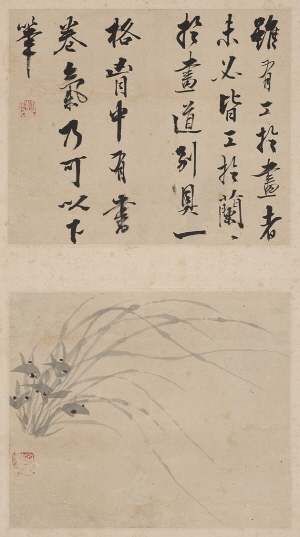 雖有工扵畫者
未必皆工扵蘭〻
扵畫道別具一
格胷中有書
卷氣乃可以下
筆